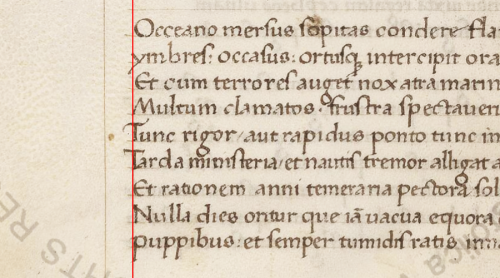 Occeano mersus sopitas condere fla
ymbres: occasus: ortusq; intercipit ora
Et cum terrores auget nox atra marin
Multum clamatos frustra spectaueri
Tunc rigor aut rapidus ponto tunc in
Tarda ministeria et nautis tremor alligat a
Et rationem anni temeraria pectora sol
Nulla dies oritur que iā uacua equora
puppibus: et semper tumidis ratis